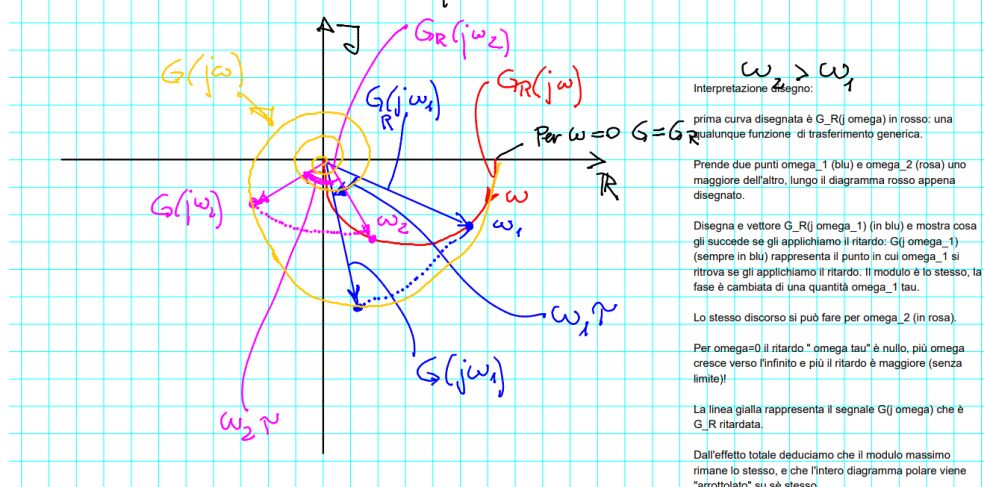 J
G_R(jω_2)
G(jω)
G_R(jω_1)
G_R(jω)
ω_2 > ω_1
Per ω=0 G=G_R
ℝ
ω
G(jω_2)
ω_2
ω_1
ω_1 τ
G(jω_1)
ω_2 τ
Interpretazione disegno:
prima curva disegnata è G_R(j omega) in rosso: una
qualunque funzione di trasferimento generica.
Prende due punti omega_1 (blu) e omega_2 (rosa) uno
maggiore dell'altro, lungo il diagramma rosso appena
disegnato.
Disegna e vettore G_R(j omega_1) (in blu) e mostra cosa
gli succede se gli applichiamo il ritardo: G(j omega_1)
(sempre in blu) rappresenta il punto in cui omega_1 si
ritrova se gli applichiamo il ritardo. Il modulo è lo stesso, la
fase è cambiata di una quantità omega_1 tau.
Lo stesso discorso si può fare per omega_2 (in rosa).
Per omega=0 il ritardo " omega tau" è nullo, più omega
cresce verso l'infinito e più il ritardo è maggiore (senza
limite)!
La linea gialla rappresenta il segnale G(j omega) che è
G_R ritardata.
Dall'effetto totale deduciamo che il modulo massimo
rimane lo stesso, e che l'intero diagramma polare viene
"arrotolato" su sè stesso